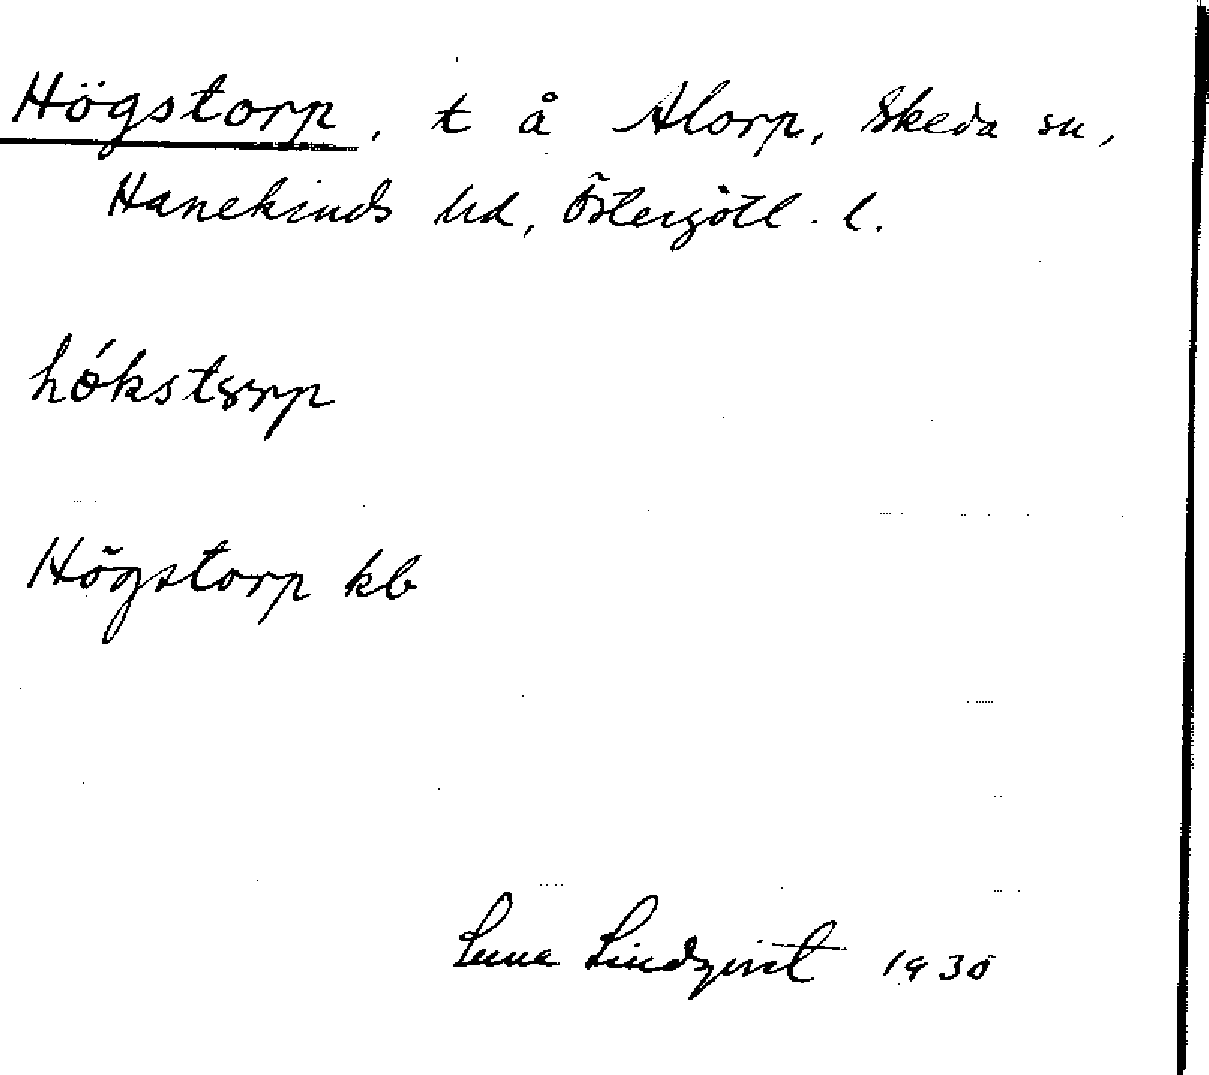 Högstorp, t å Alorp, Skeda sn,
Hanekinds hd, Östergötl. l.
hókstorp
Högstorp kb
Lindqvist 1930